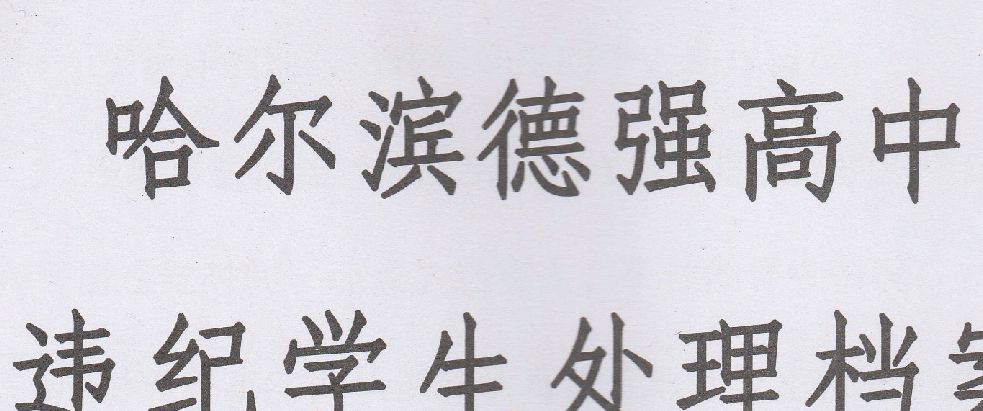 哈尔滨德强高中
违纪学生处理档案